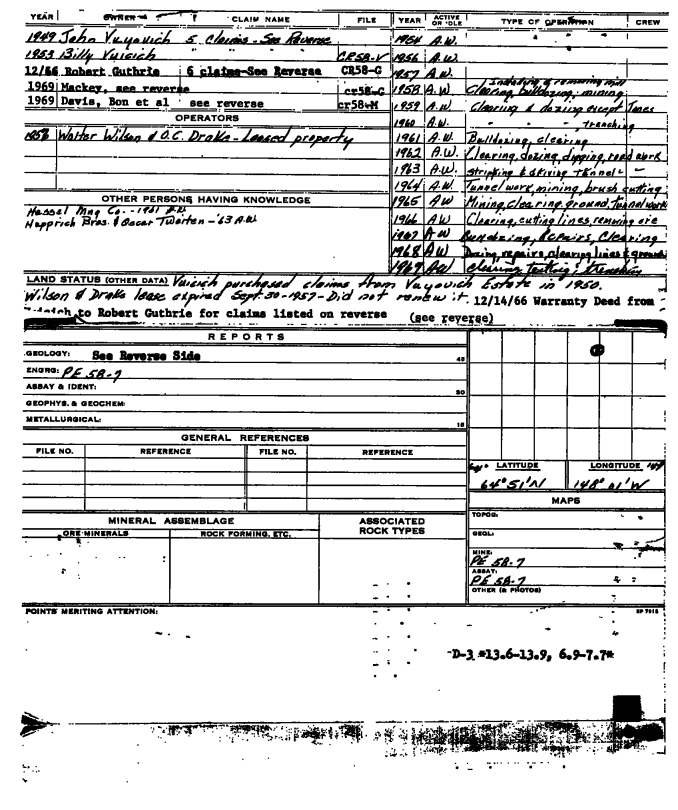 YEAR OWNER CLAIM NAME FILE
1949 John Vuyovich 5 Claims - See Reverse
1953 Billy Vuicich CR58-V
12/66 Robert Guthrie 6 claims-See Reverse CR58-G
1969 Mackey, see reverse cr58-G
1969 Davis, Bon et al see reverse cr58+M
OPERATORS
1956 Walter Wilson & O.C. Drake - Leased property
OTHER PERSONS HAVING KNOWLEDGE
Hassel Mng Co. - 1961 A.W.
Happrich Bros. & Oscar Tweiten - '63 A.W.
YEAR ACTIVE OR IDLE TYPE OF OPERATION CREW
1954 A.W. " " "
1956 A.W.
1957 A.W.
Including & removing mill
1958 A.W. Clearing, bulldozing, mining
1959 A.W. Clearing & dozing except Taxes
1960 A.W. " " , trenching
1961 A.W. Bulldozing, clearing
1962 A.W. Clearing, dozing, digging, road work
1963 A.W. stripping & driving tunnel -
1964 A.W. Tunnel work, mining, brush cutting
1965 A.W Mining, clearing ground, tunnel work
1966 A.W Clearing, cutting lines, removing ore
1967 A W Bulldozing, Repairs, Clearing
1968 A W Dozing, repairs, clearing lines & ground
1969 AW clearing, trenching
LAND STATUS (OTHER DATA) Vuicich purchased claims from Vuyovich Estate in 1950.
Wilson & Drake lease expired Sept. 30-1957 - Did not renew it. 12/14/66 Warranty Deed from
to Robert Guthrie for claims listed on reverse (see reverse)
REPORTS
GEOLOGY: See Reverse Side 45
ENGRG: PE 58-7
ASSAY & IDENT: 30
GEOPHYS. & GEOCHEM:
METALLURGICAL: 15
GENERAL REFERENCES
FILE NO. REFERENCE FILE NO. REFERENCE
LATITUDE LONGITUDE
64° 51' N 148° 01' W
MAPS
TOPOG:
GEOL:
MINE:
PE 58-7
ASSAY:
PE 58-7
OTHER (& PHOTOS)
MINERAL ASSEMBLAGE ASSOCIATED ROCK TYPES
ORE MINERALS ROCK FORMING, ETC.
POINTS MERITING ATTENTION:
D-3 *13.6-13.9, 6.9-7.7*